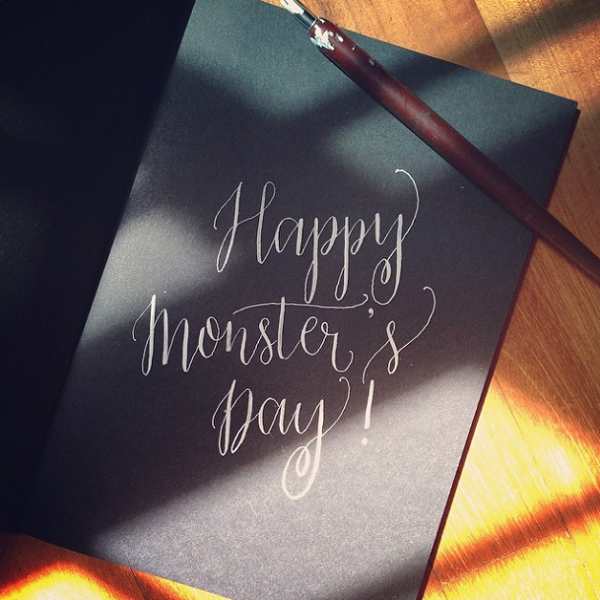 Happy
Monster's
Day!